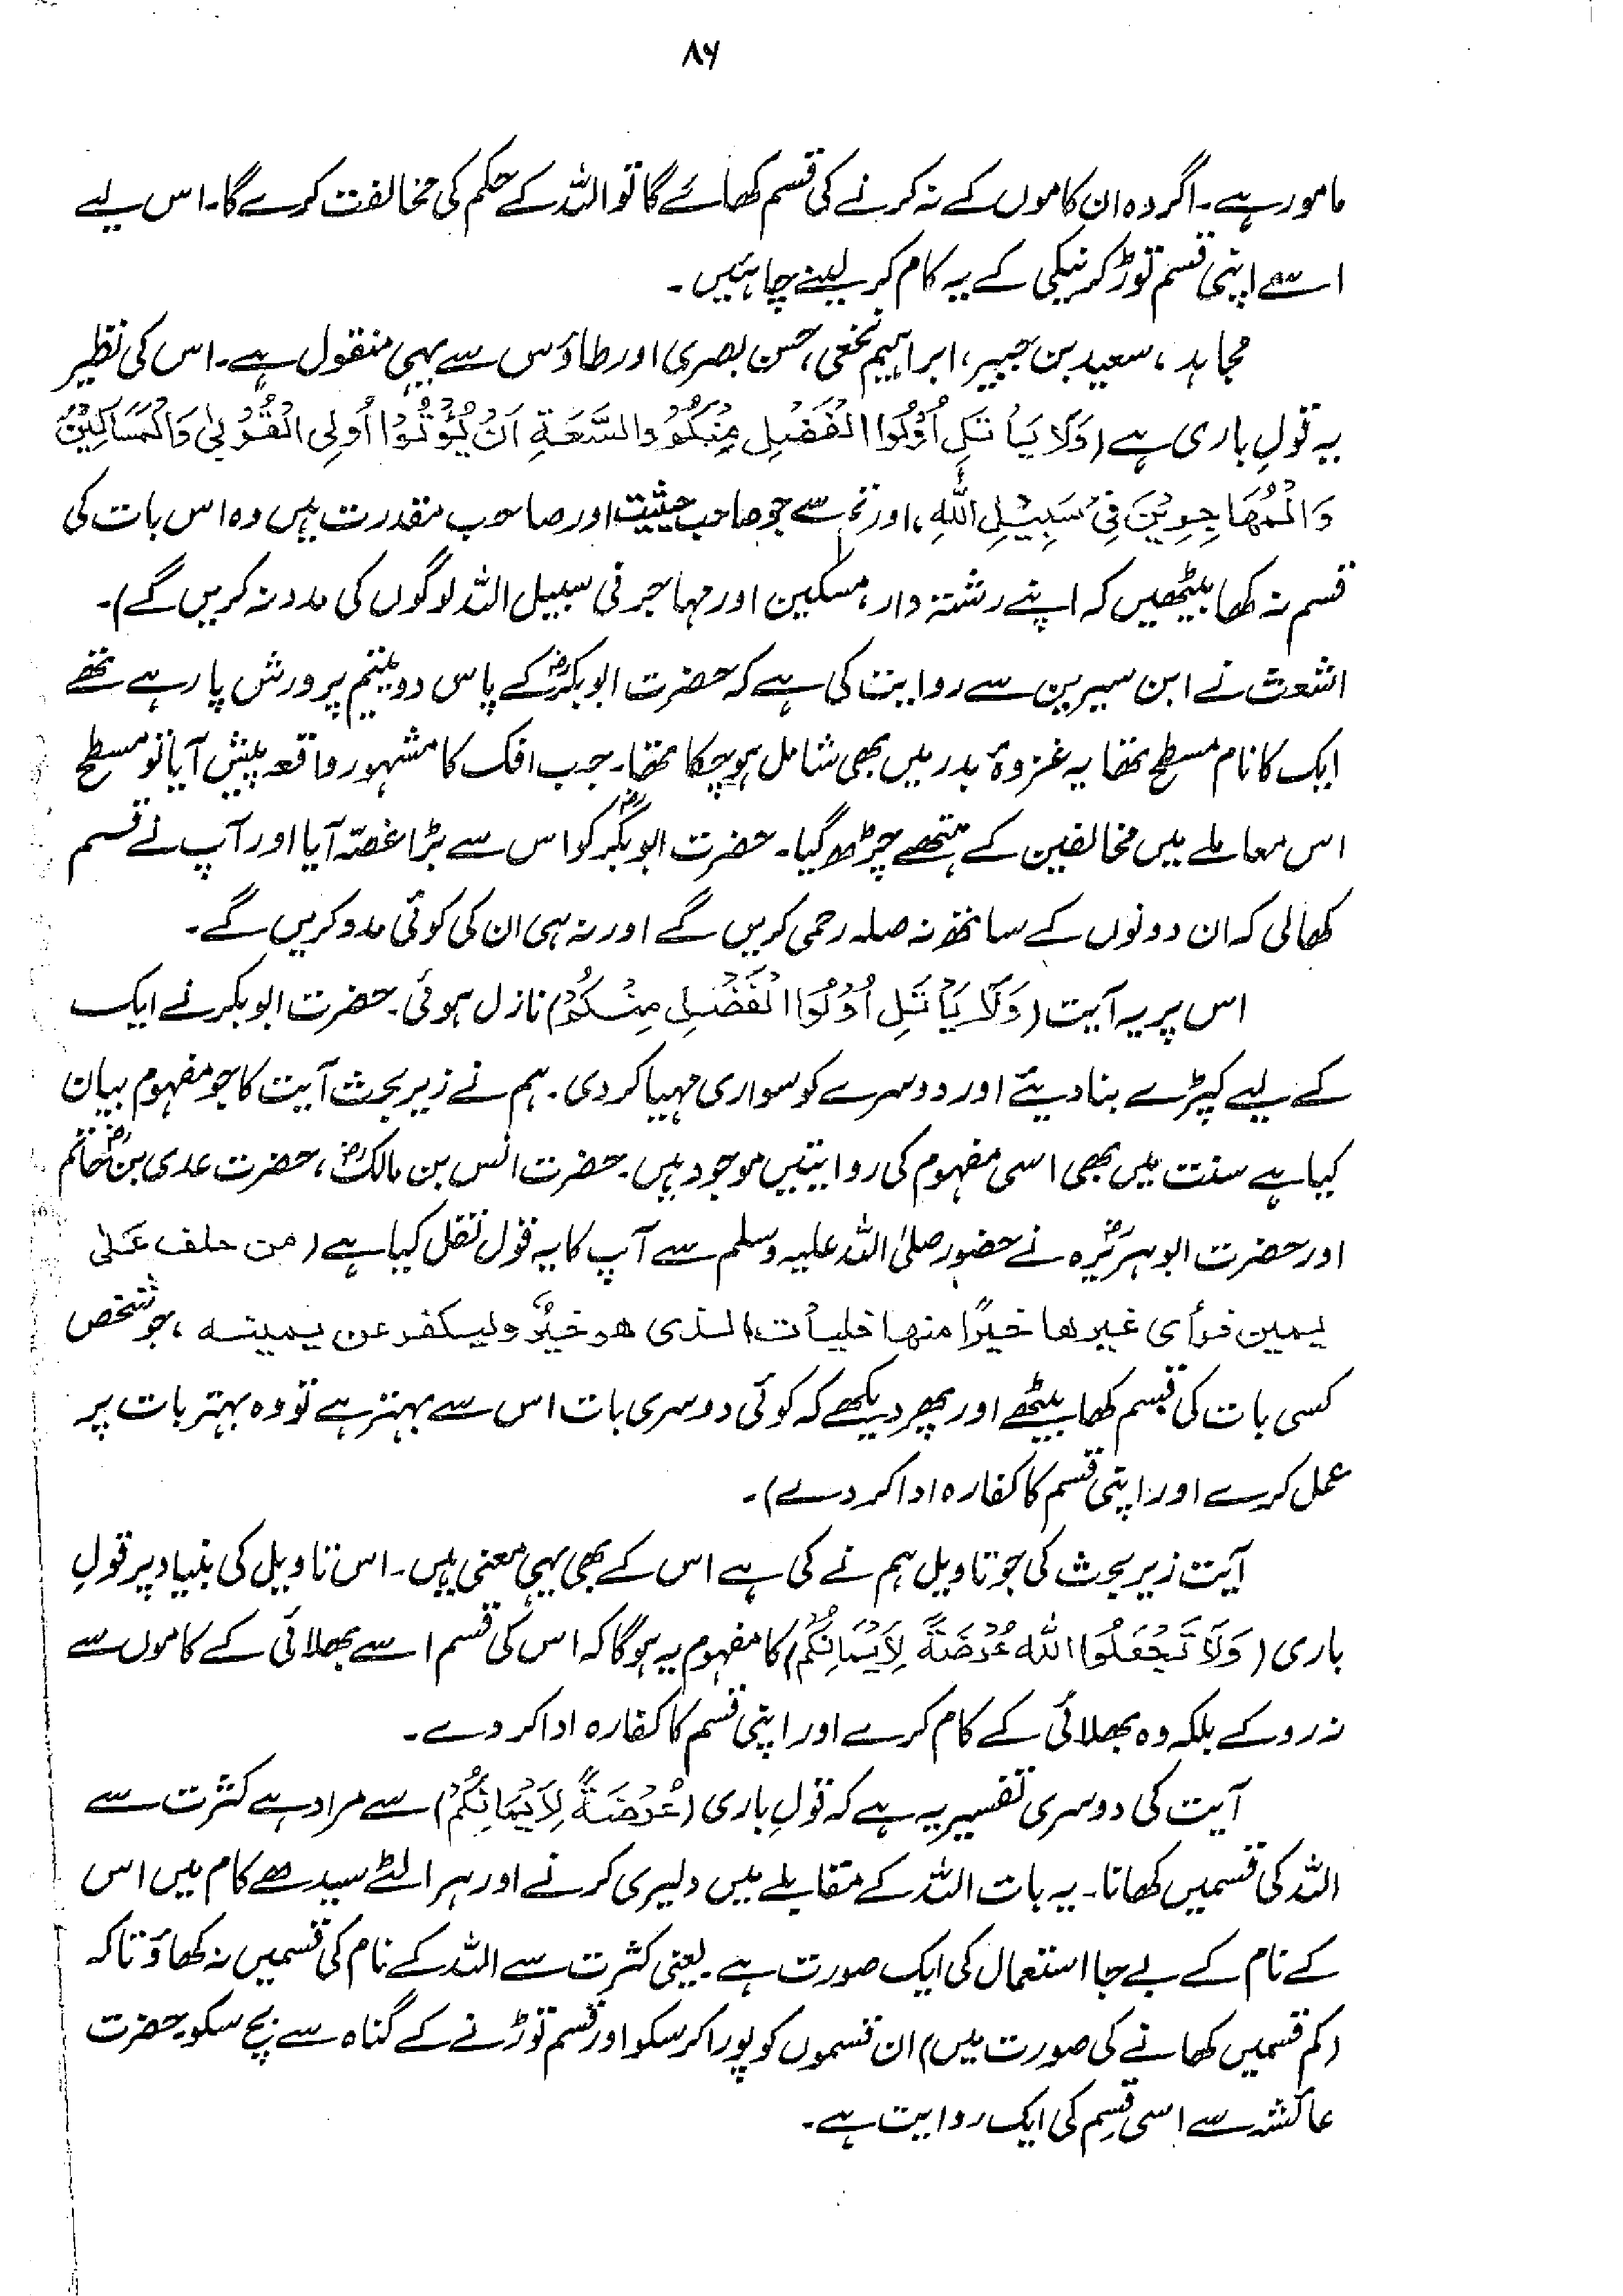 ۸۶
مامور ہے۔ اگر وہ ان کاموں کے نہ کرنے کی قسم کھائے گا تو اللہ کے حکم کی مخالفت کرے گا۔ اس لیے
اسے اپنی قسم توڑ کر نیکی کے یہ کام کر لینے چاہئیں۔
مجاہد، سعید بن جبیر، ابراہیم نخعی، حسن بصری اور طاؤس سے یہی منقول ہے۔ اس کی نظیر
یہ قولِ باری ہے (وَلَا يَأْتَلِ اُولُوا الْفَضْلِ مِنْكُمْ وَالسَّعَةِ اَنْ يُّؤْتُوْا اُولِی الْقُرْبٰى وَالْمَسَاكِيْنَ
وَالْمُهَاجِرِيْنَ فِیْ سَبِيْلِ اللهِ، اور تم سے جو صاحب حیثیت اور صاحب مقدرت ہیں وہ اس بات کی
قسم نہ کھا بیٹھیں کہ اپنے رشتہ دار، مسکین اور مہاجر فی سبیل اللہ لوگوں کی مدد نہ کریں گے)۔
اشعث نے ابن سیرین سے روایت کی ہے کہ حضرت ابوبکرؓ کے پاس دو یتیم پرورش پا رہے تھے
ایک کا نام مسطح تھا یہ غزوۂ بدر میں بھی شامل ہو چکا تھا۔ جب افک کا مشہور واقعہ پیش آیا تو مسطح
اس معاملے میں مخالفین کے ہتھے چڑھ گیا۔ حضرت ابوبکرؓ کو اس سے بڑا غصّہ آیا اور آپ نے قسم
کھالی کہ ان دونوں کے ساتھ نہ صلہ رحمی کریں گے اور نہ ہی ان کی کوئی مدد کریں گے۔
اس پر یہ آیت (وَلَا يَأْتَلِ اُولُوا الْفَضْلِ مِنْكُمْ) نازل ہوئی۔ حضرت ابوبکر نے ایک
کے لیے کپڑے بنا دیئے اور دوسرے کو سواری مہیا کر دی۔ ہم نے زیر بحث آیت کا جو مفہوم بیان
کیا ہے سنت میں بھی اسی مفہوم کی روایتیں موجود ہیں۔ حضرت انس بن مالکؓ، حضرت عدی بن حاتمؓ
اور حضرت ابوہریرہؓ نے حضور صلی اللہ علیہ وسلم سے آپ کا یہ قول نقل کیا ہے (من حلف عَلٰی
یمین فرأی غیرھا خیرًا منھا فلیأت الذی ھو خیرٌ ولیکفر عن یمینہ، جو شخص
کسی بات کی قسم کھا بیٹھے اور پھر دیکھے کہ کوئی دوسری بات اس سے بہتر ہے تو وہ بہتر بات پر
عمل کرے اور اپنی قسم کا کفارہ ادا کر دے)۔
آیت زیر بحث کی جو تاویل ہم نے کی ہے اس کے بھی یہی معنی ہیں۔ اس تاویل کی بنیاد پر قولِ
باری (وَلَا تَجْعَلُوا اللهَ عُرْضَةً لِاَيْمَانِكُمْ) کا مفہوم یہ ہو گا کہ اس کی قسم اسے بھلائی کے کاموں سے
نہ روکے بلکہ وہ بھلائی کے کام کرے اور اپنی قسم کا کفارہ ادا کر دے۔
آیت کی دوسری تفسیر یہ ہے کہ قولِ باری (عُرْضَةً لِاَيْمَانِكُمْ) سے مراد ہے کثرت سے
اللہ کی قسمیں کھانا۔ یہ بات اللہ کے مقابلے میں دلیری کرنے اور ہر الٹے سیدھے کام میں اس
کے نام کے بے جا استعمال کی ایک صورت ہے۔ یعنی کثرت سے اللہ کے نام کی قسمیں نہ کھاؤ تاکہ
(کم قسمیں کھانے کی صورت میں) ان قسموں کو پورا کر سکو اور قسم توڑنے کے گناہ سے بچ سکو۔ حضرت
عائشہ سے اسی قِسم کی ایک روایت ہے۔